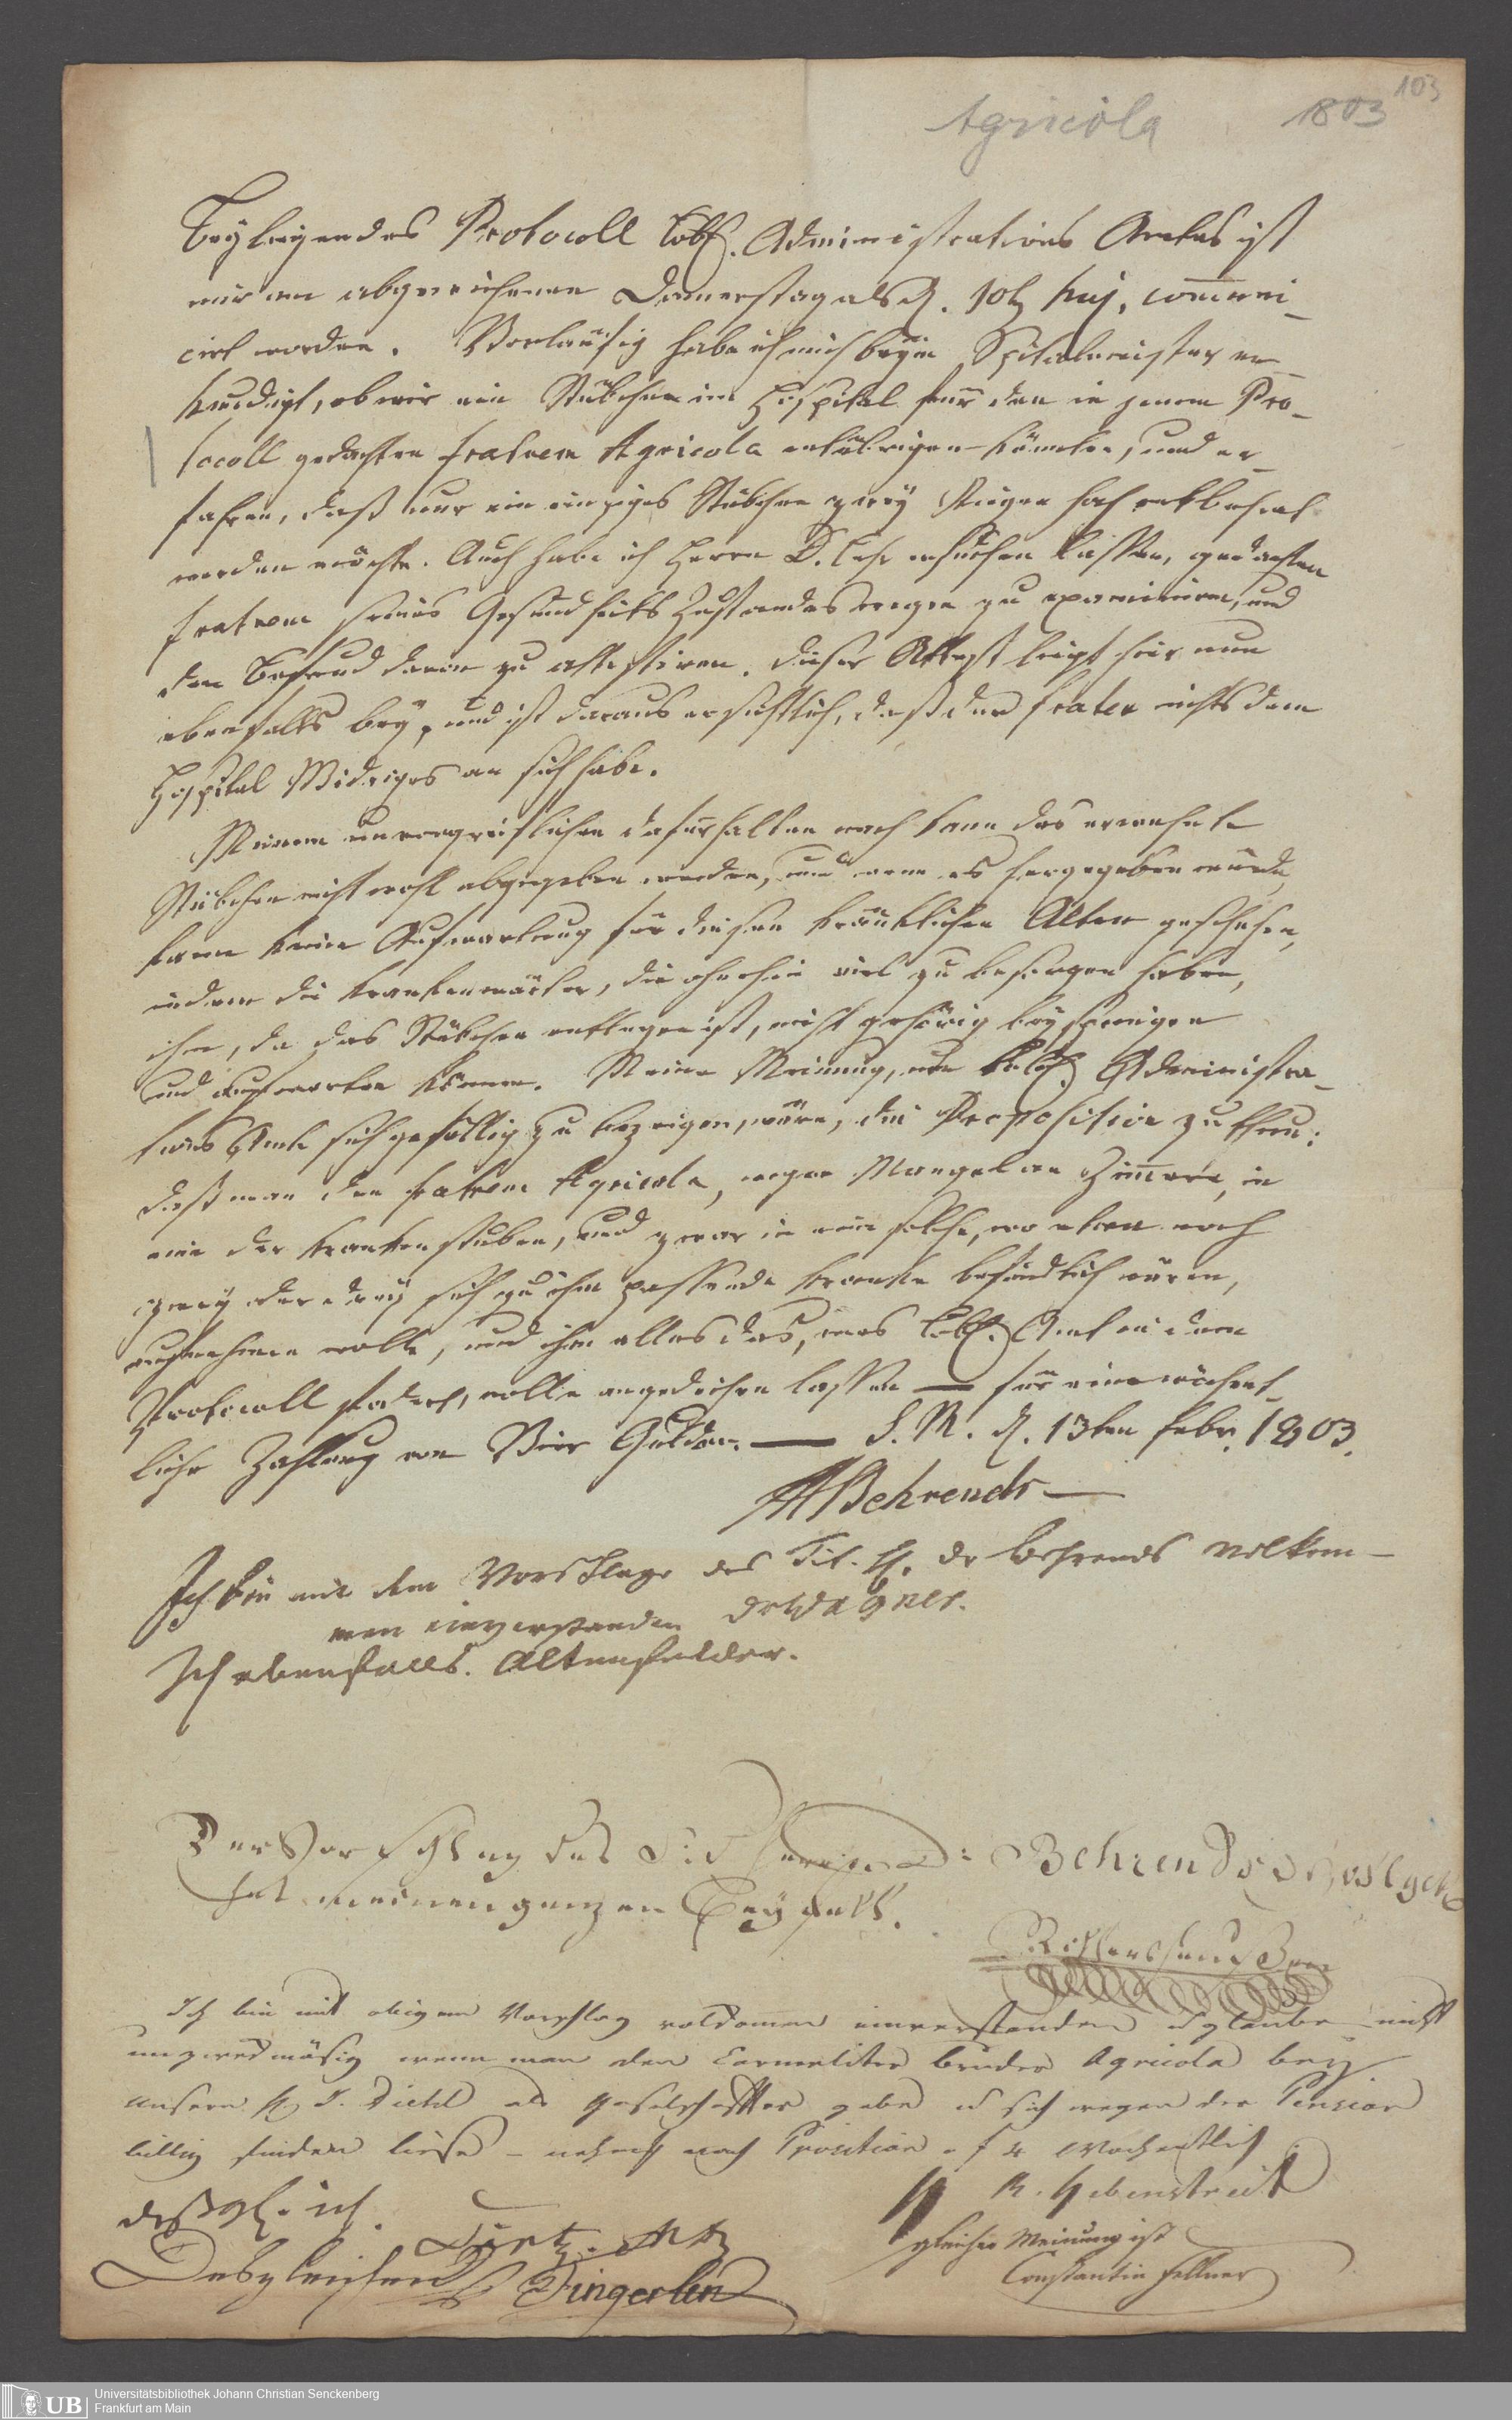 103
Agricola 1803
Beyliegendes Protocoll löbl. Administrations Amtes ist
mir am abgewichenen Donnerstag als d. 10t huj. communi-
cirt worden. Vorläufig habe ich mich beym Spitalmeister er-
kundigt, ob wir ein Stübchen im Hospital für den in jenem Pro-
tocoll gedachten fratrem Agricola entübrigen könnten, und er-
fahren, daß nur ein einziges Stübchen zwey Stiegen hoch entbehrt
werden möchte. Auch habe ich Herrn D. Lehr ersuchen lassen, gedachten
fratrem seines Gesundheits Zustandes wegen zu examiniren, und
den Befund davon zu attestiren. Dieser Attest liegt hier nun
ebenfalls bey, und ist daraus ersichtlich, daß der frater nichts dem
Hospital Widriges an sich habe.
Meinem unvorgreiflichen dafürhalten nach kann das erwehnte
Stübchen nicht wohl abgegeben werden, und wenn es hergegeben würde,
kann keine Aufwartung für diesen kränklichen Alten geschehen,
indem die Krankenwärter, die ohnehin viel zu besorgen haben,
ihm, da das Stübchen entlegen ist, nicht gehörig beyspringen
und aufwarten können. Meine Meinung, um Löbl. Administra-
tions Amte sich gefällig zu bezeigen, wäre, die Proposition zu thun:
daß man den fratrem Agricola, wegen Mangel an Zimmern, in
eine der Krankenstuben, und zwar in eine solche, wo etwa noch
zwey oder drey sich zu ihm passende Kranke befindlich wären,
aufnehmen wolle, und ihm alles das, was Löbl. Amt in dem
Protocoll fodert, wolle angedeihen lassen — für eine wöchent-
liche Zahlung von Vier Gulden. — S. M. d. 13ten febr. 1803.
Behrends
Ich bin mit dem Vorschlage des Tit. H. dr Behrends vollkom-
men einverstanden dr Wagner.
Ich ebenfalls. Altenfelder.
Der Vorschlag des Tit Herrn D: Behrends
hat meinen ganzen Beyfall.
Rittershaußen
Ich bin mit obigem Vorschlag volkomen einverstanden u glaube nicht
unzweckmäsig wenn man den Carmeliter bruder Agricola bey
unsern H J. Diehl als Geselschaffter gebe u sich wegen der Pension
billig finden liese - nach f 4 Wochentlich
H R. Hebenstreit
deßgl. ich.
gleicher Meinung ist
Constantin Fellner
Desgleichen Fingerlin
UB Universitätsbibliothek Johann Christian Senckenberg
Frankfurt am Main